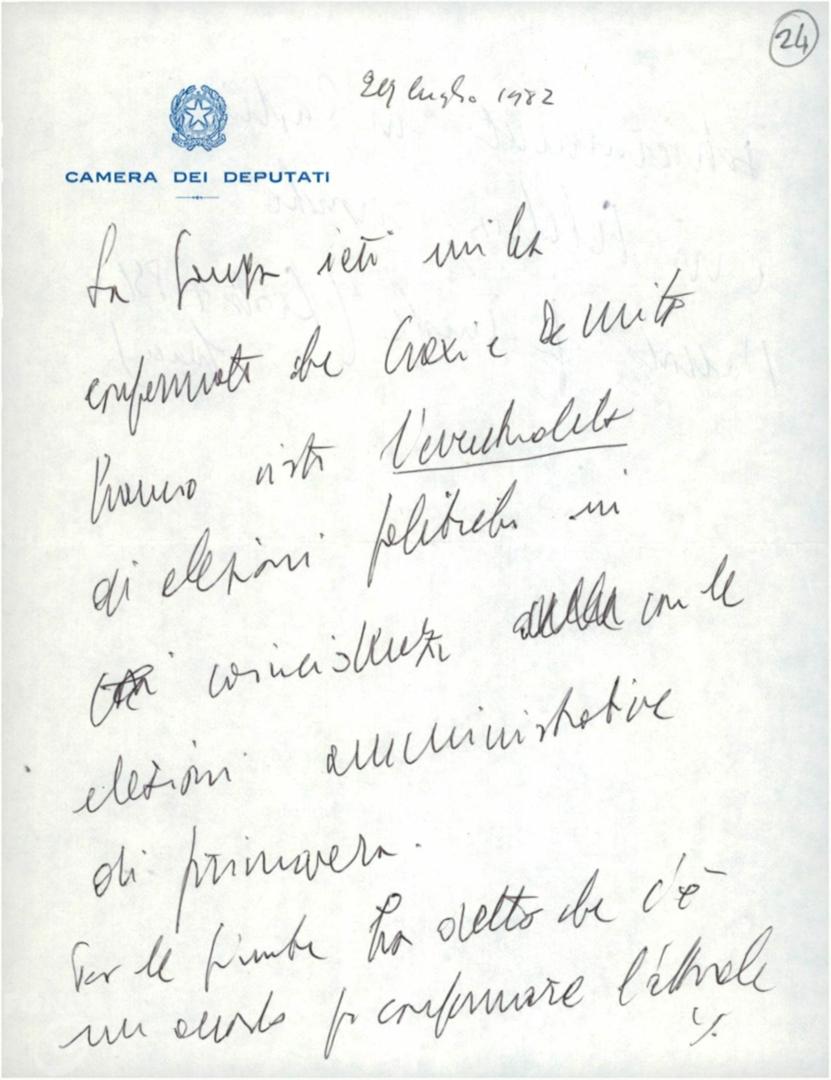 24
29 luglio 1982
CAMERA DEI DEPUTATI
La ieri mi ha
confermato che Craxi e De Mita
hanno visto l'eventualità
di elezioni politiche in
coincidenza con le
elezioni amministrative
di primavera.
Per le giunte ha detto che c'è
un accordo per confermare l'attuale
./.